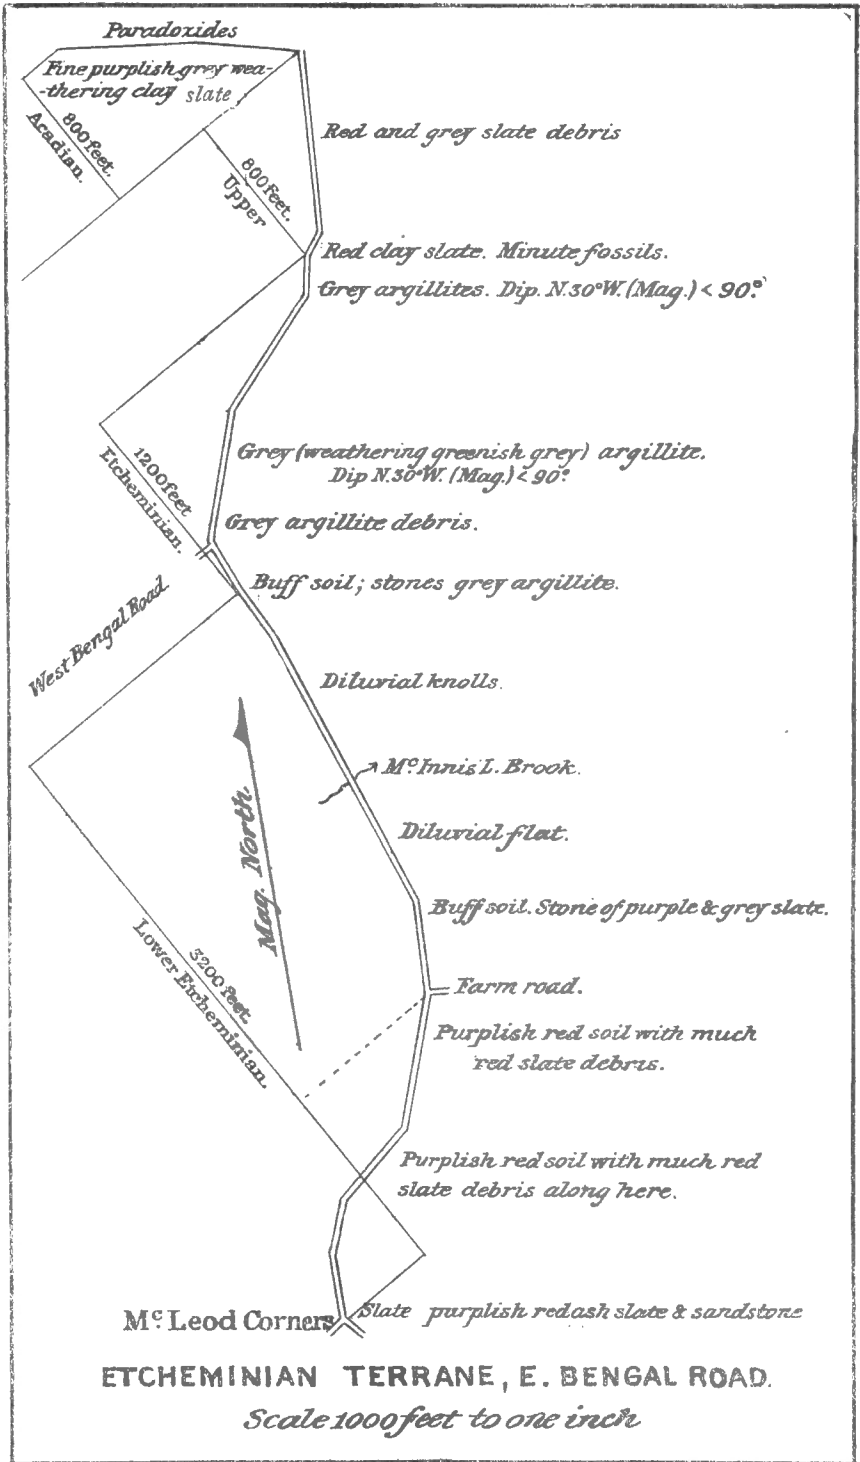 Paradoxides
Fine purplish grey wea-
-thering clay slate
800 feet.
Acadian.
Red and grey slate debris
800 feet.
Upper
Red clay slate. Minute fossils.
Grey argillites. Dip. N.30°W. (Mag.) < 90°
Grey (weathering greenish grey) argillite.
Dip N.30°W. (Mag.) < 90°
1200 feet
Etcheminian.
Grey argillite debris.
Buff soil; stones grey argillite.
West Bengal Road
Diluvial knolls.
Mc. Innis L. Brook.
Mag. North.
Diluvial flat.
Buff soil. Stone of purple & grey slate.
3200 feet.
Lower Etcheminian.
Farm road.
Purplish red soil with much
red slate debris.
Purplish red soil with much red
slate debris along here.
Mc. Leod Corners
Slate purplish red ash slate & sandstone
ETCHEMINIAN TERRANE, E. BENGAL ROAD.
Scale 1000 feet to one inch